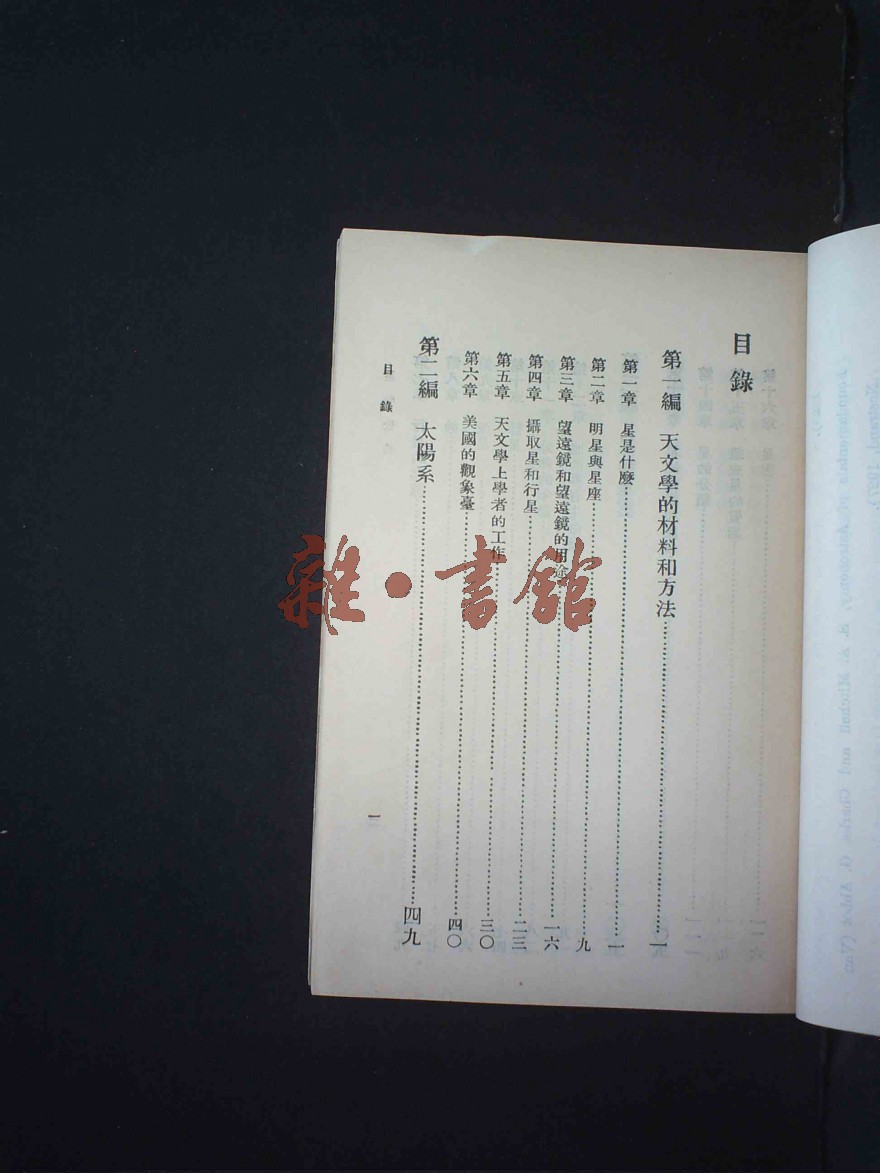 目錄
第一編 天文學的材料和方法……一
第一章 星是什麼……一
第二章 明星與星座……九
第三章 望遠鏡和望遠鏡的用途……一六
第四章 攝取星和行星……二三
第五章 天文學上學者的工作……三〇
第六章 美國的觀象臺……四〇
第二編 太陽系……四九
目錄
一
雜·書館